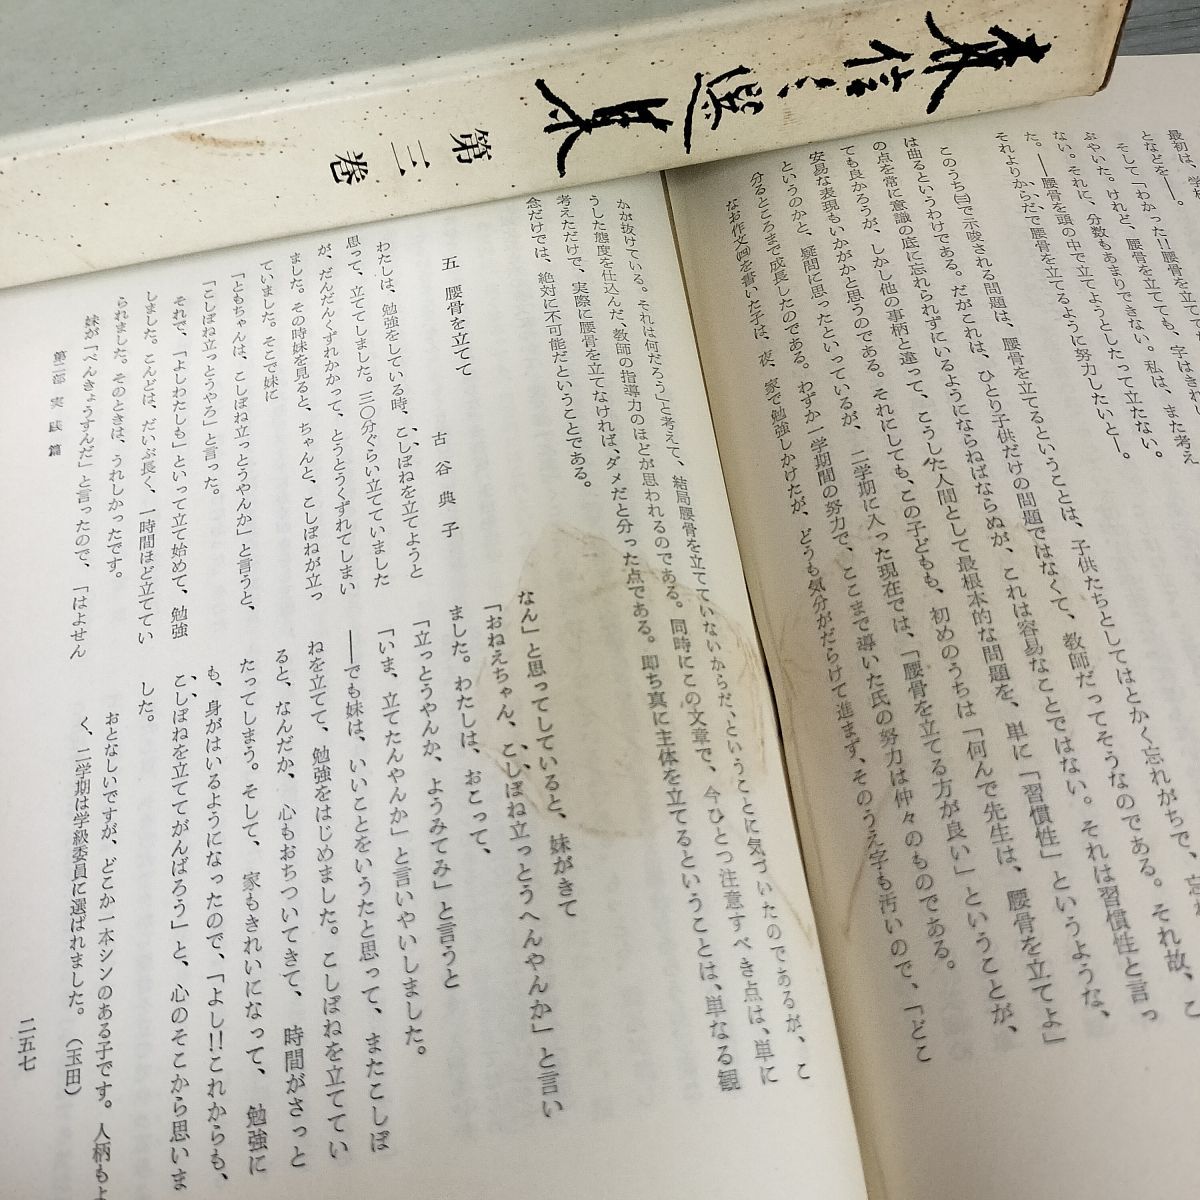 森信三選集
第三巻
最初は、学校
となどを―。
そして「わかった!!腰骨を立てた
ぶやいた。けれど、腰骨を立てても、字はきれ
ない。それに、分数もあまりできない。私は、また考え
た。―腰骨を頭の中で立てようとしたって立たない。
それよりからだで腰骨を立てるように努力したいと―。
このうち㈢で示唆される問題は、腰骨を立てるということは、子供たちとしてはとかく忘れがちで、忘れ
は曲るというわけである。だがこれは、ひとり子供だけの問題ではなくて、教師だってそうなのである。それ故、こ
の点を常に意識の底に忘れられずにいるようにならねばならぬが、これは容易なことではない。それは習慣性と言っ
ても良かろうが、しかし他の事柄と違って、こうした人間として最根本的な問題を、単に「習慣性」というような、
安易な表現もいかがかと思うのである。それにしても、この子どもも、初めのうちは「何んで先生は、腰骨を立てよ」
というのかと、疑問に思ったといっているが、二学期に入った現在では、「腰骨を立てる方が良い」ということが、
分るところまで成長したのである。わずか一学期間の努力で、ここまで導いた氏の努力は仲々のものである。
なお作文㈣を書いた子は、夜、家で勉強しかけたが、どうも気分がだらけて進まず、そのうえ字も汚いので、「どこ
かが抜けている。それは何だろう」と考えて、結局腰骨を立てていないからだ、ということに気づいたのであるが、こ
うした態度を仕込んだ、教師の指導力のほどが思われるのである。同時にこの文章で、今ひとつ注意すべき点は、単に
考えただけで、実際に腰骨を立てなければ、ダメだと分った点である。即ち真に主体を立てるということは、単なる観
念だけでは、絶対に不可能だということである。
五 腰骨を立てて
古谷典子
わたしは、勉強をしている時、こしぼねを立てようと
思って、立ててしました。三〇分ぐらい立てていました
が、だんだんくずれかかって、とうとうくずれてしまい
ました。その時妹を見ると、ちゃんと、こしぼねが立っ
ていました。そこで妹に
「ともちゃんは、こしぼね立っとうやんか」と言うと、
「こしぼね立っとうやろ」と言った。
それで、「よしわたしも」といって立て始めて、勉強
しました。こんどは、だいぶ長く、一時間ほど立ててい
られました。そのときは、うれしかったです。
妹が「べんきょうすんだ」と言ったので、「はよせん
なん」と思ってしていると、妹がきて
「おねえちゃん、こしぼね立っとうへんやんか」と言い
ました。わたしは、おこって、
「立っとうやんか、ようみてみ」と言うと
「いま、立てたんやんか」と言いやいしました。
―でも妹は、いいことをいうたと思って、またこしぼ
ねを立てて、勉強をはじめました。こしぼねを立ててい
ると、なんだか、心もおちついてきて、時間がさっと
たってしまう。そして、家もきれいになって、勉強に
も、身がはいるようになったので、「よし!!これからも、
こしぼねを立ててがんばろう」と、心のそこから思いま
した。
おとなしいですが、どこか一本シンのある子です。人柄もよ
く、二学期は学級委員に選ばれました。(玉田)
第二部 実践篇
二五七